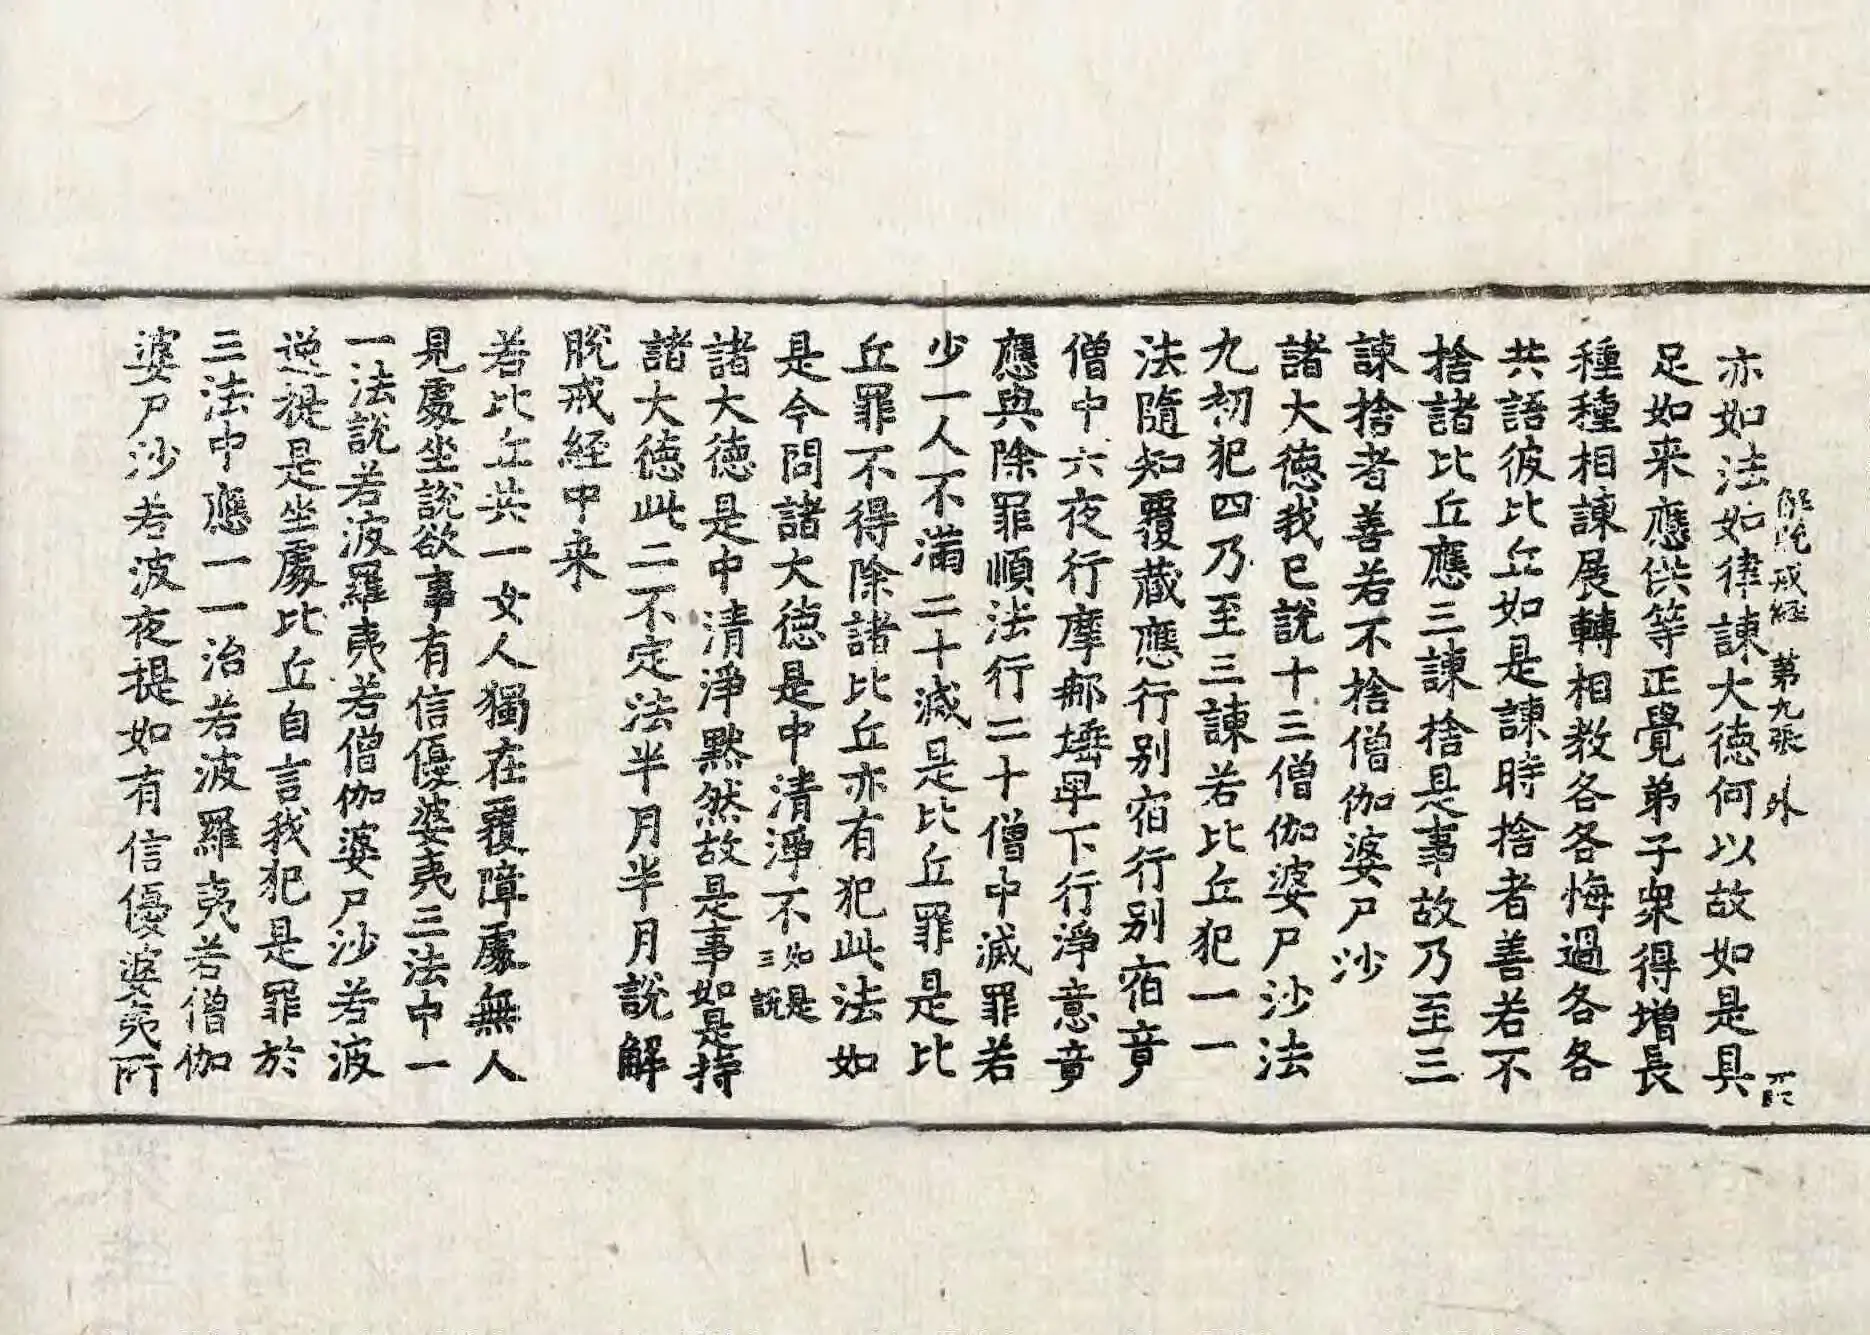 解脫戒経 第九張 外
亦如法如律諫大德何以故如是具
足如来應供等正覺弟子衆得增長
種種相諫展轉相教各各悔過各各
共語彼比丘如是諫時捨者善若不
捨諸比丘應三諫捨是事故乃至三
諫捨者善若不捨僧伽婆尸沙
諸大德我已說十三僧伽婆尸沙法
九初犯四乃至三諫若比丘犯一一
法隨知覆藏應行別宿行別宿竟
僧中六夜行摩那埵卑下行淨意竟
應與除罪順法行二十僧中滅罪若
少一人不滿二十滅是比丘罪是比
丘罪不得除諸比丘亦有犯此法如
是今問諸大德是中清淨不如是三說
諸大德是中清淨默然故是事如是持
諸大德此二不定法半月半月說解
脫戒経中来
若比丘共一女人獨在覆障處無人
見處坐說欲事有信優婆夷三法中一
一法說若波羅夷若僧伽婆尸沙若波
逸提是坐處比丘自言我犯是罪於
三法中應一一治若波羅夷若僧伽
婆尸沙若波夜提如有信優婆夷所